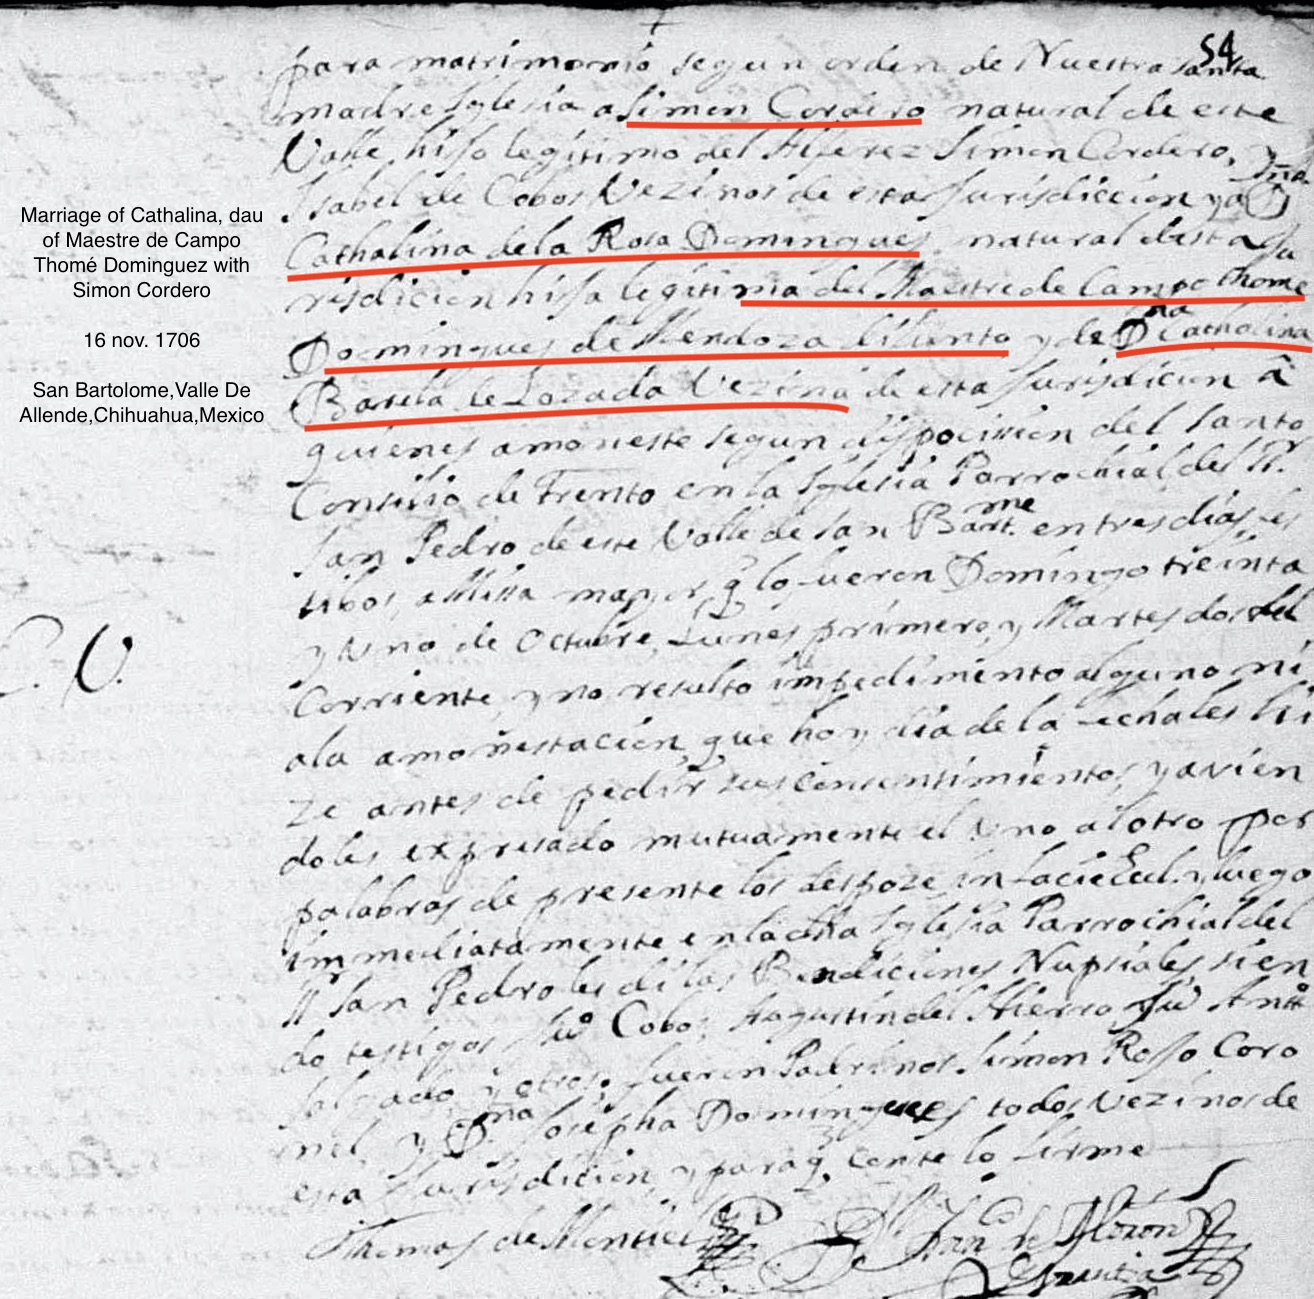 54
para matrimonio segun orden de Nuestra santa
madre Iglesia a Simon Cordero natural de este
Valle, hijo legitimo del Alferez Simon Cordero, y
Isabel de Cobos Vezinos de esta Jurisdiccion y a Dña
Cathalina de la Rosa Domingues natural desta Ju
risdicion hija legitima del Maestre de Campo thome
Domingues de Mendoza difunto y de Dña Catholina
Barela de Lozada Vezina de esta Jurisdicion â
quienes amoneste segun disposision del Santo
Consilio de Trento en la Iglesia Parrochial del
San Pedro de este Valle de San Bartme en tres dias fes
tibos, a Missa mayor q lo fueron Domingo treinta
y Uno de Octubre, Lunes primero, y Martes dos del
Corriente, y no resulto impedimento alguno ni
a la amonestacion que hoy dia de la fecha les hi
ze antes de pedir sus consentimientos, y avien
doles expresado mutuamente el Uno al otro por
palabras de presente los despoze in facie Eccl. y luego
immediatamente en la dha Iglesia Parrochial del
San Pedro les di las Bendiciones Nupsiales, sien
do testigos Juo Cobos, Augustin del Hierro Juo Anto
Salzado, y otros, fueron Padrinos Simon Rosso Coro
nel, y Dña Josepha Domingues todos Vezinos de
esta Jurisdicion y para q conste lo firme
Thomas de Montiel
Juan de
C. V.
Marriage of Cathalina, dau
of Maestre de Campo
Thomé Dominguez with
Simon Cordero
16 nov. 1706
San Bartolome,Valle De
Allende,Chihuahua,Mexico